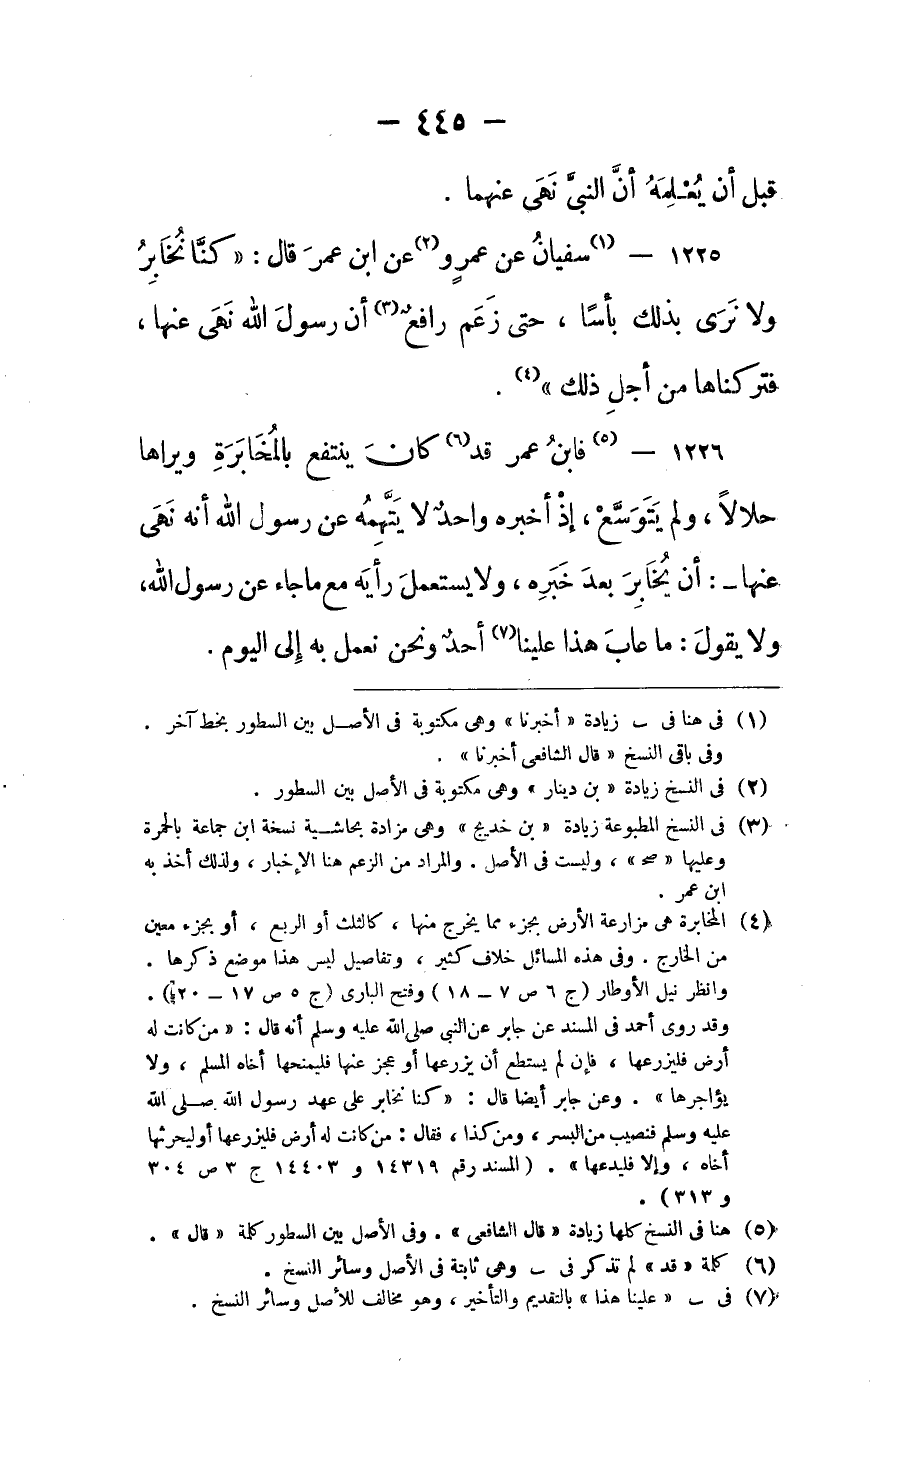 — ٤٤٥ —
قبل أن يُعْلِمَهُ أنَّ النبيَّ نَهَى عنهما .
١٢٢٥ — (١) سفيانُ عن عمرٍو(٢) عن ابن عمرَ قال : « كنَّا نُخَابِرُ
ولا نَرَى بذلك بأسًا ، حتى زَعَم رافعٌ(٣) أن رسولَ الله نَهَى عنها ،
فتركناها من أجلِ ذلك »(٤) .
١٢٢٦ — (٥) فابنُ عمر قد(٦) كانَ ينتفع بالمُخَابَرَةِ ويراها
حلالاً ، ولم يَتَوَسَّعْ ، إذْ أخبره واحدٌ لا يَتَّهِمُهُ عن رسول الله أنه نَهَى
عنها ـ : أن يُخَابِرَ بعدَ خَبَرِه ، ولا يستعملَ رأيَه مع ما جاء عن رسول الله ،
ولا يقولَ : ما عابَ هذا علينا(٧) أحدٌ ونحن نعمل به إلى اليوم .
(١) فى هنا فى ب زيادة « أخبرنا » وهى مكتوبة فى الأصل بين السطور بخط آخر .
وفى باقى النسخ « قال الشافعى أخبرنا » .
(٢) فى النسخ زيادة « بن دينار » وهى مكتوبة فى الأصل بين السطور .
(٣) فى النسخ المطبوعة زيادة « بن خديج » وهى مزادة بحاشية نسخة ابن جماعة بالحمرة
وعليها « صح » ، وليست فى الأصل . والمراد من الزعم هنا الإخبار ، ولذلك أخذ به
ابن عمر .
(٤) المخابرة هى مزارعة الأرض بجزء مما يخرج منها ، كالثلث أو الربع ، أو بجزء معين
من الخارج . وفى هذه المسائل خلاف كثير ، وتفاصيل ليس هذا موضع ذكرها .
وانظر نيل الأوطار (ج ٦ ص ٧ — ١٨ ) وفتح البارى (ج ٥ ص ١٧ — ٢٠) .
وقد روى أحمد فى المسند عن جابر عن النبى صلى الله عليه وسلم أنه قال : « من كانت له
أرض فليزرعها ، فإن لم يستطع أن يزرعها أو عجز عنها فليمنحها أخاه المسلم ، ولا
يؤاجرها » . وعن جابر أيضا قال : « كنا نخابر على عهد رسول الله صلى الله
عليه وسلم فنصيب من البسر ، ومن كذا ، فقال : من كانت له أرض فليزرعها أو ليحرثها
أخاه ، وإلا فليدعها » . ( المسند رقم ١٤٣١٩ و ١٤٤٠٣ ج ٣ ص ٣٠٤
و ٣١٣ ) .
(٥) هنا فى النسخ كلها زيادة « قال الشافعى » . وفى الأصل بين السطور كلمة « قال » .
(٦) كلمة « قد » لم تذكر فى ب وهى ثابتة فى الأصل وسائر النسخ .
(٧) فى ب « علينا هذا » بالتقديم والتأخير ، وهو مخالف للأصل وسائر النسخ .